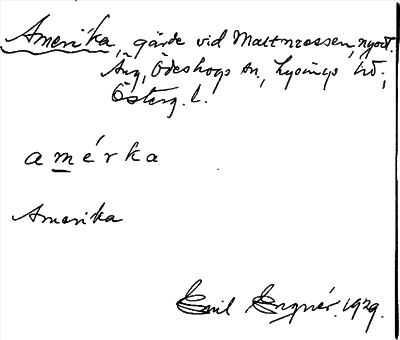 Amerika, gärde vid Mattnässen, nyodl.
Äng, Ödeshögs sn., Lysings hd.,
Österg. l.
amérka
Amerika
Emil Engnér. 1929.